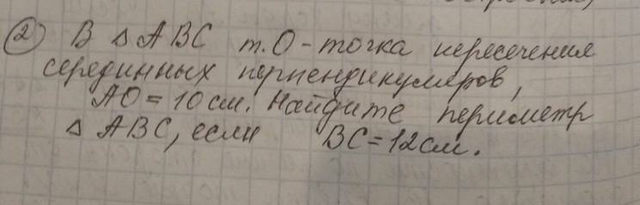 ② В △ АВС т. О - точка пересечения
серединных перпендикуляров,
АО = 10 см. Найдите периметр
△ АВС, если ВС = 12 см.